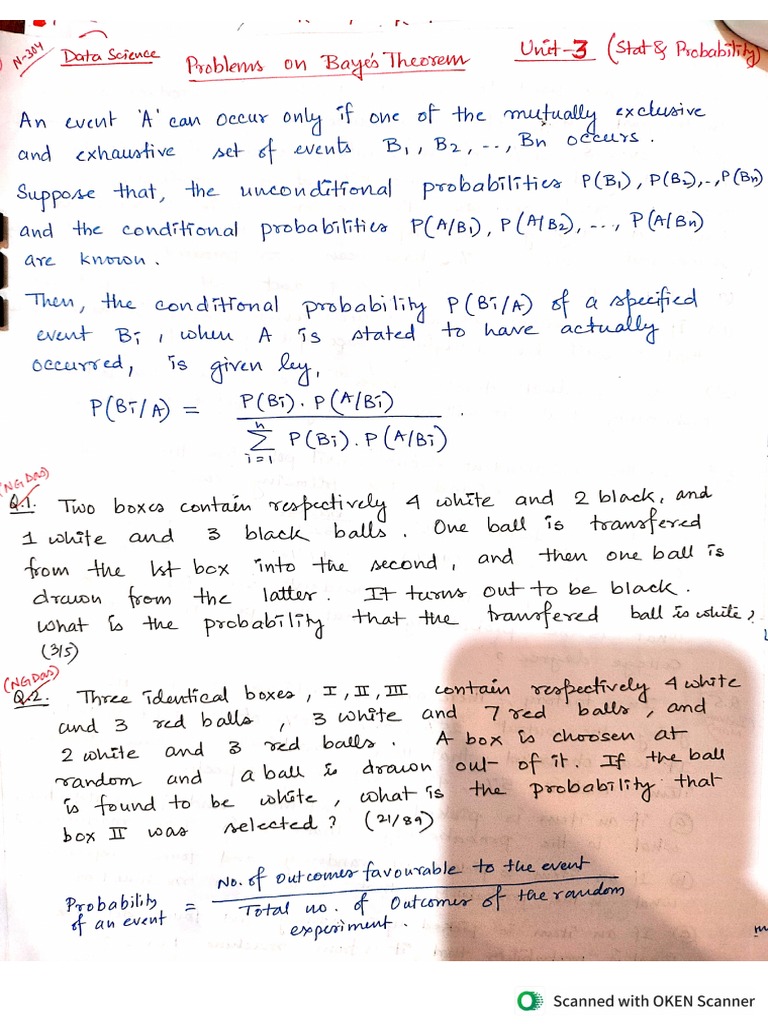 N-304 Data Science Problems on Baye's Theorem Unit-3 (Stat & Probability)
An event 'A' can occur only if one of the mutually exclusive
and exhaustive set of events B1, B2, .., Bn occurs.
Suppose that, the unconditional probabilities P(B1), P(B2),.., P(Bn)
and the conditional probabilities P(A/B1), P(A/B2), ..., P(A/Bn)
are known.
Then, the conditional probability P(Bi/A) of a specified
event Bi, when A is stated to have actually
occurred, is given by,
P(Bi/A) = P(Bi). P(A/Bi)
n
∑ P(Bi). P(A/Bi)
i=1
(NG Das)
Q.1. Two boxes contain respectively 4 white and 2 black, and
1 white and 3 black balls. One ball is transfered
from the 1st box into the second, and then one ball is
drawn from the latter. It turns out to be black.
What is the probability that the transfered ball is white?
(3/5)
(NG Das)
Q.2. Three identical boxes, I, II, III contain respectively 4 white
and 3 red balls, 3 white and 7 red balls, and
2 white and 3 red balls. A box is choosen at
random and a ball is drawn out of it. If the ball
is found to be white, what is the probability that
box II was selected? (21/89)
Probability of an event = No. of outcomes favourable to the event
Total no. of Outcomes of the random
experiment.
Scanned with OKEN Scanner